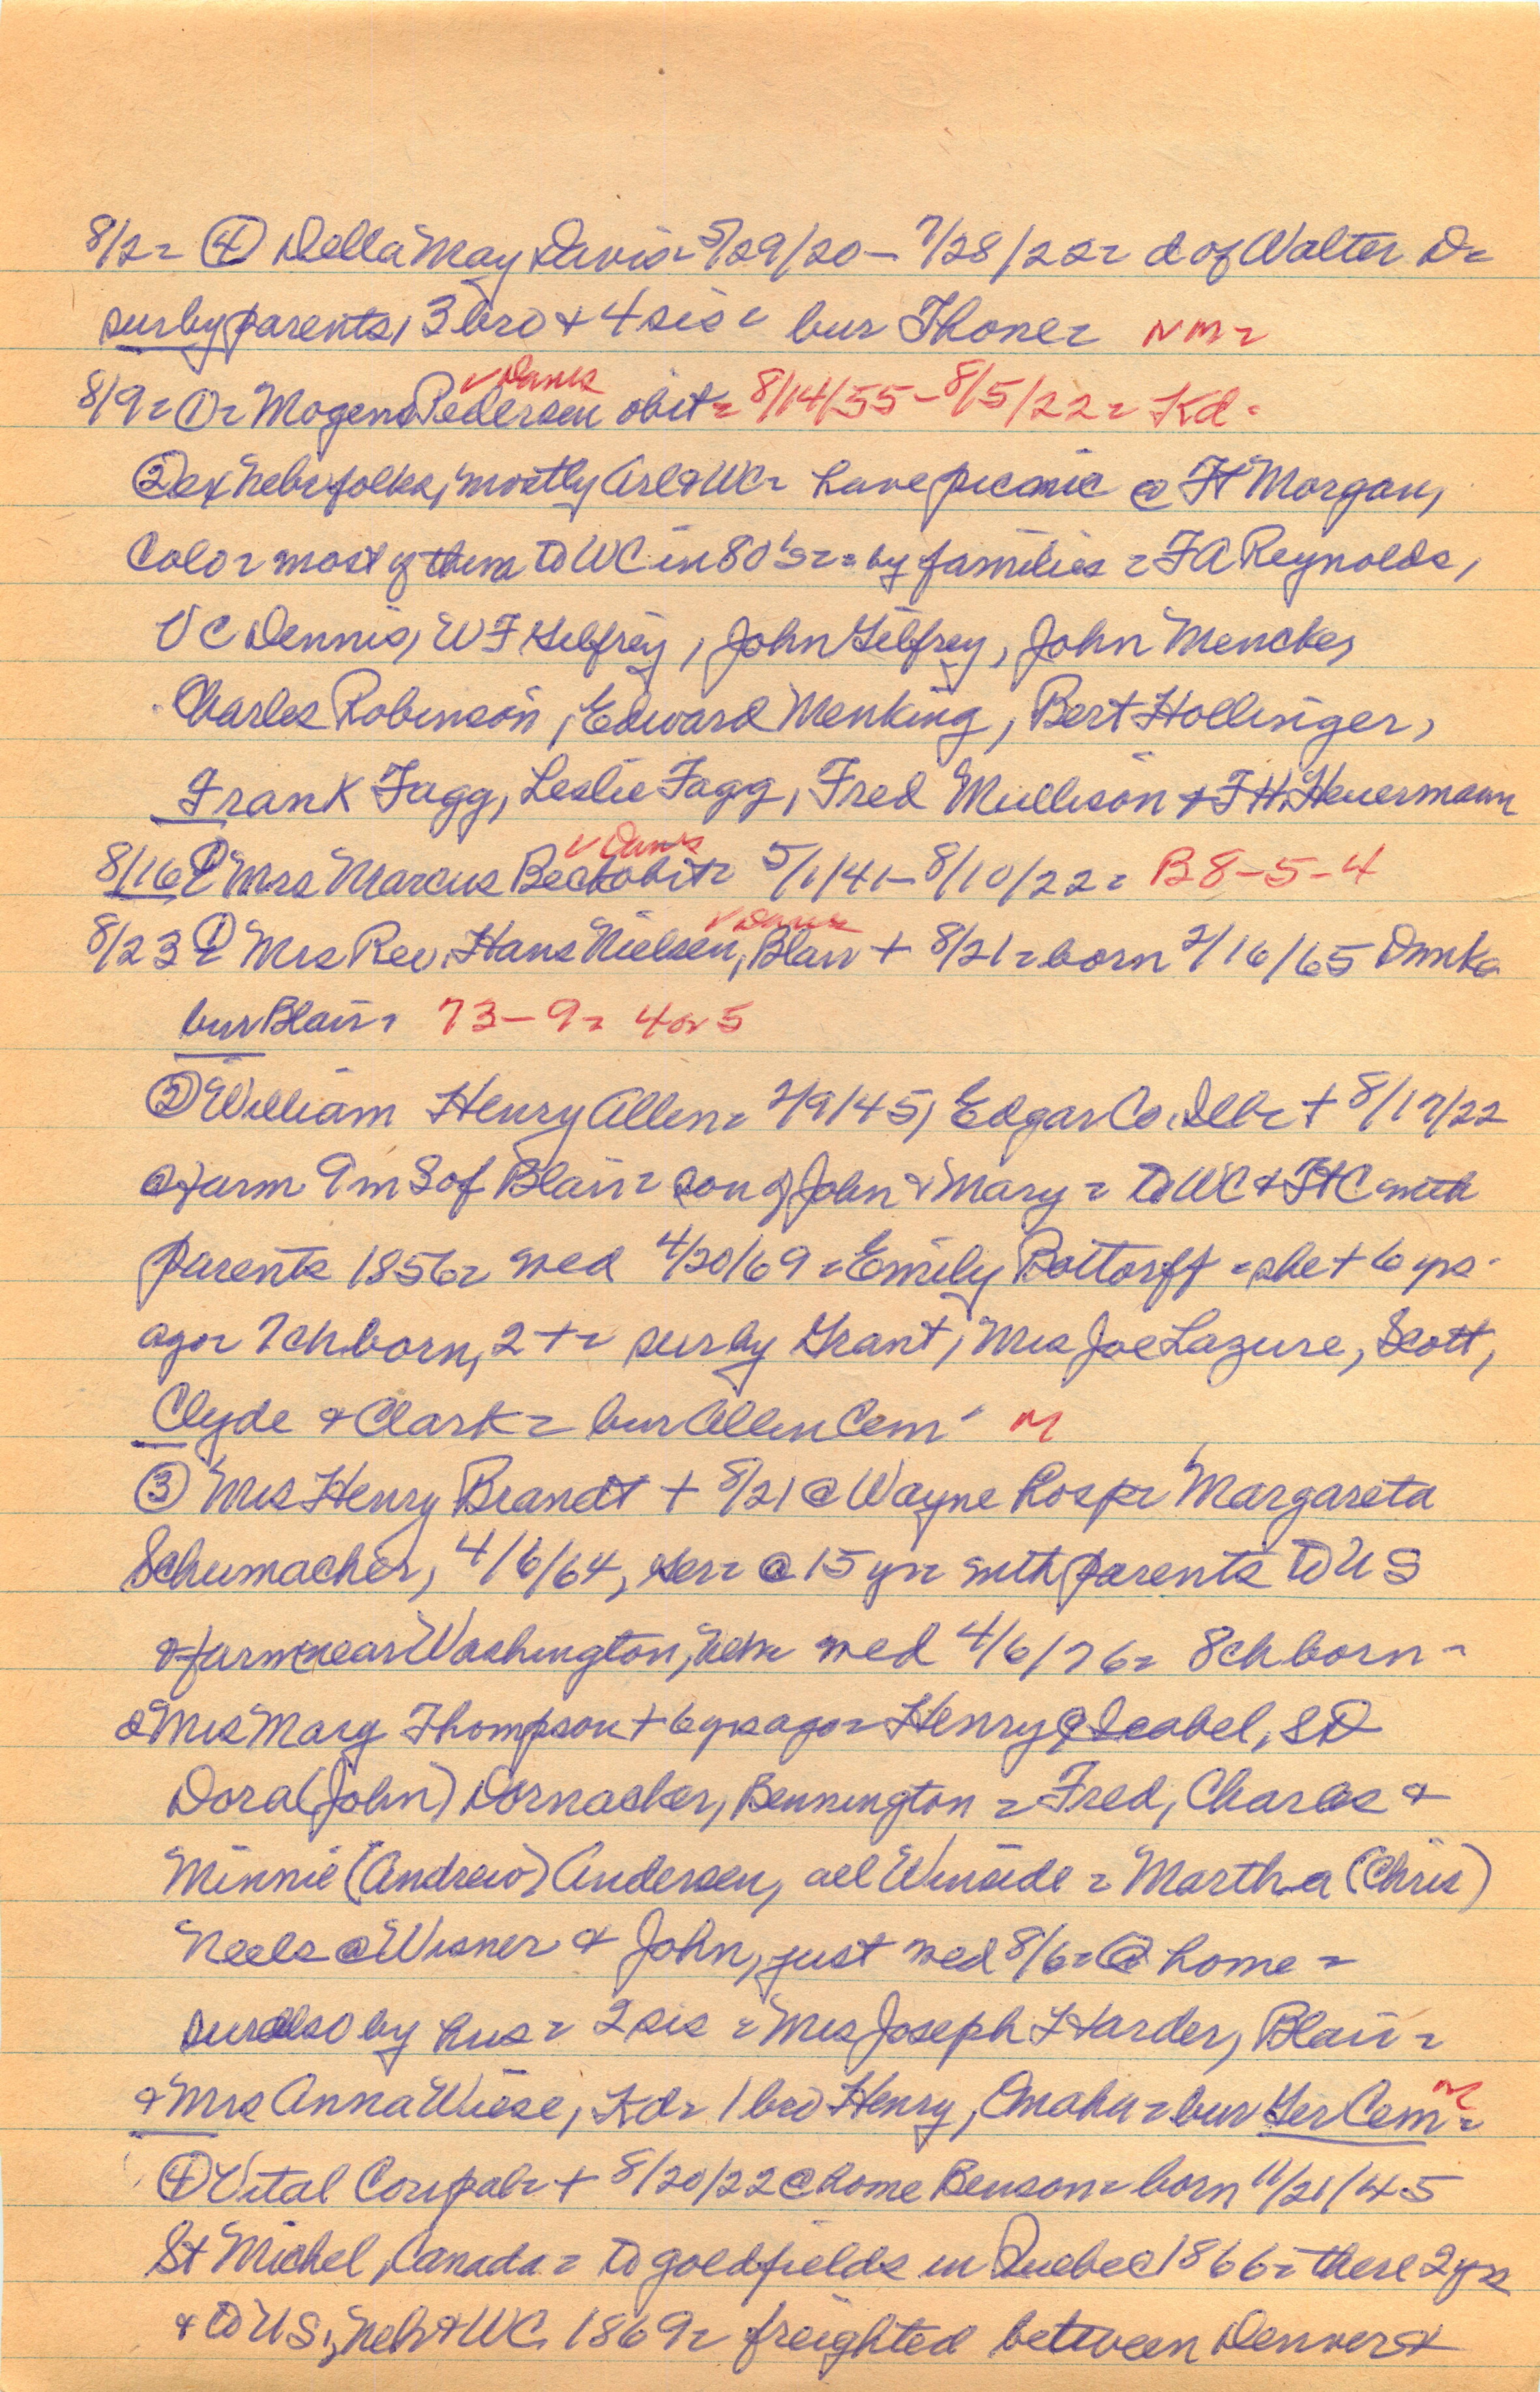 8/2= ④ Della May Davis= 5/29/20 - 7/28/22= d of Walter D=
sur by parents, 3 bro & 4 sis = bur Thone= NM=
✓ Danes
8/9= ①= Mogens Pedersen obit= 8/14/55 - 8/5/22= Kd=
② ex Nebr folks, mostly Arl & WC= have picnic @ Ft Morgan,
Colo= most of them to WC in 80's= = by families = FA Reynolds,
VC Dennis, WF Gilfrey, John Gilfrey, John Mencke,
Charles Robinson, Edward Menking, Bert Hollinger,
Frank Fagg, Leslie Fagg, Fred Mullison & FH Heuermann
✓ Danes
8/16 ①= Mrs Marcus Beck obit= 5/1/41 - 8/10/22= B 8-5-4
✓ Danes
8/23 ①= Mrs Rev. Hans Nielsen, Blair + 8/21= born 2/16/65 Dmka
bur Blair= 73-9= 4 or 5
② William Henry Allen= 2/9/45, Edgar Co. Ill= + 8/17/22
@ farm 9 m S of Blair= son of John & Mary = to WC & Ft C with
parents 1856= wed 4/20/69 = Emily Bottorff = she + 6 yrs
ago= 7 ch born, 2 += sur by Grant, Mrs Joe Lazure, Scott,
Clyde & Clark= bur Allen Cem= M
③ Mrs Henry Brandt + 8/21 @ Wayne hosp= Margareta
Schumacher, 4/6/64, Ger= @ 15 yr= with parents to US
& farm near Washington, Neb= wed 4/6/76= 8 ch born=
d Mrs Marg Thompson + 6 yrs ago= Henry @ Isabel, SD
Dora (John) Dornacker, Bennington = Fred, Charles &
Minnie (Andrew) Andersen, all Winside = Martha (Chris)
Neels @ Wisner & John, just wed 8/6= @ home =
sur also by hus= 2 sis = Mrs Joseph L Harder, Blair=
& Mrs Anna Wiese, Kd= 1 bro Henry, Omaha = bur Ger Cem= M
④ Vital Coupal= + 8/20/22 @ home Benson= born 11/21/45
St Michel, Canada = to goldfields in Quebec 1866= there 2 yrs
& to US, Neb & WC 1869= freighted between Denver &